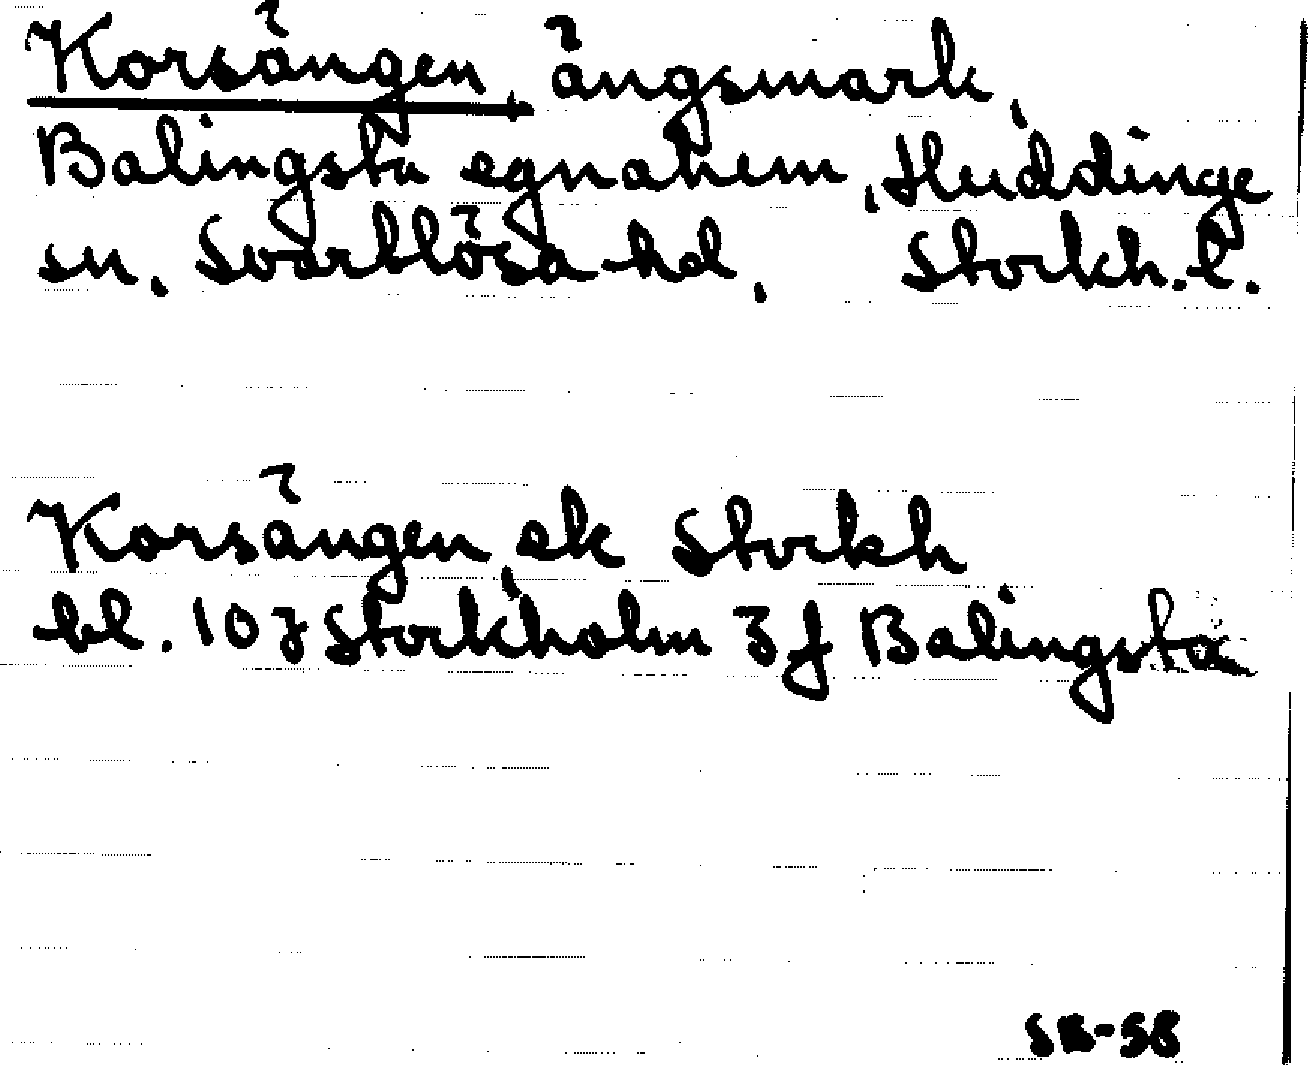 Korsängen, ängsmark,
Balingsta egnahem, Huddinge
sn, Svartlösa hd, Stockh. l.
Korsängen, ek Stockh
bl. 10 J Stockholm 3 f Balingsta
SB-58